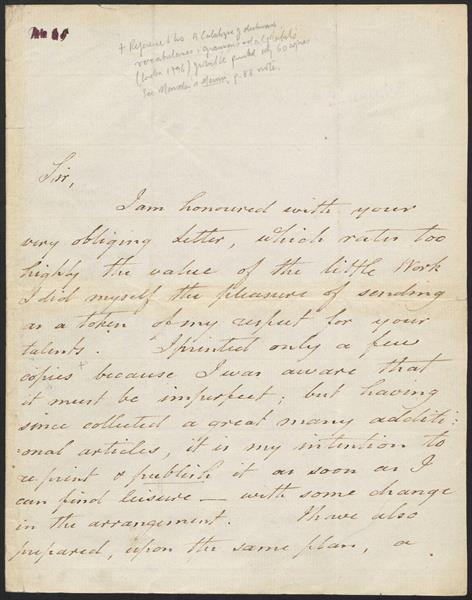 + Reference to his A Catalogue of dictionaries
vocabularies, grammars and alphabets
(London 1796) printed only 60 copies
See Marsden's Memoir, p. 88 note.
Sir,
I am honoured with your
very obliging Letter, which rates too
highly the value of the little Work
I did myself the pleasure of sending
as a token of my respect for your
talents. I printed only a few
copies + because I was aware that
it must be imperfect; but having
since collected a great many additi-
onal articles, it is my intention to
reprint & publish it as soon as I
can find leisure — with some change
in the arrangement. I have also
prepared, upon the same plan, a